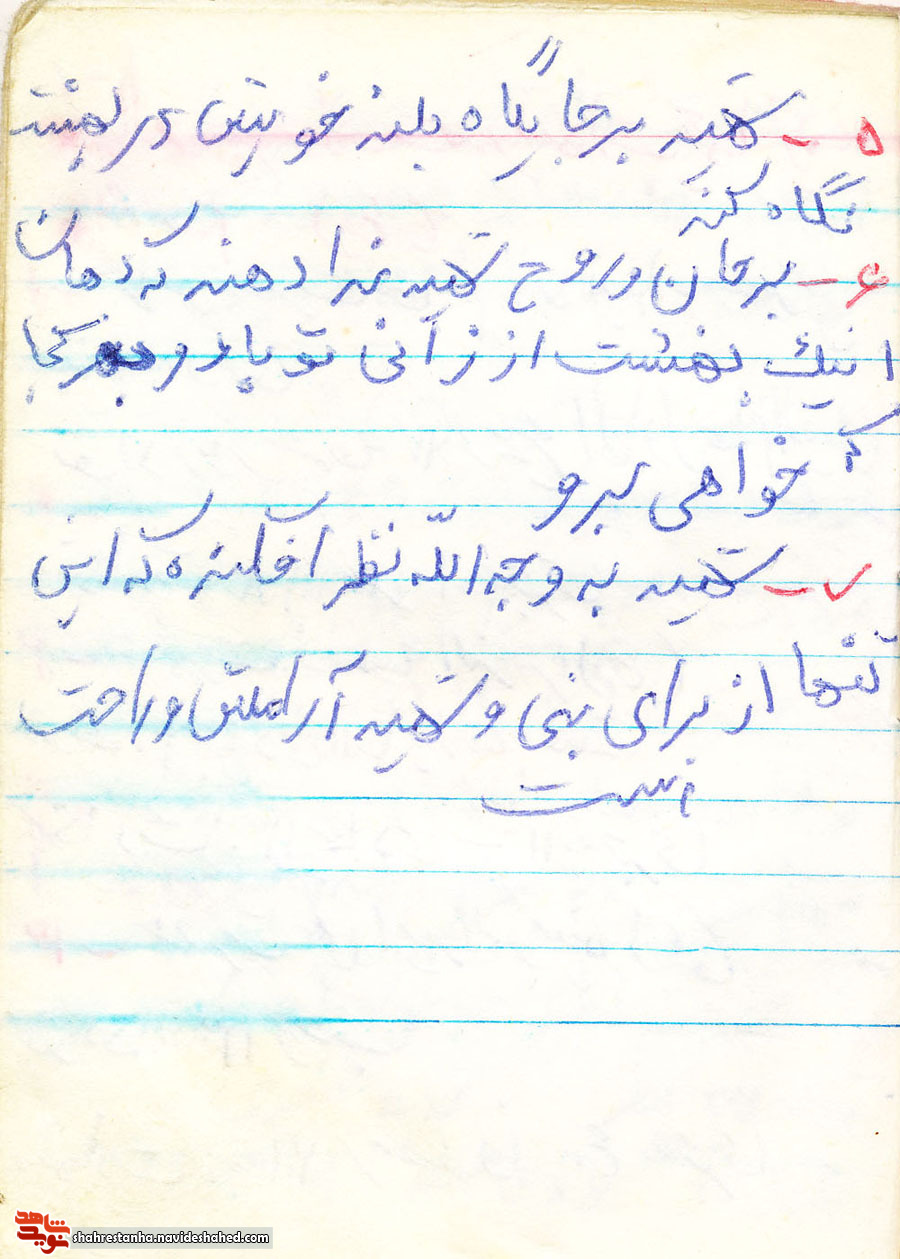 "
۵ - شهید بر جایگاه بلند خویش در بهشت
نگاه کند
۶ - بر جان و روح شهید ندا دهند که
اینک بهشت ارزانی تو باد و بهر کجا
که خواهی برو
۷ - شهید به وجه الله نظر افکنده که این
تنها از برای نبی و شهید آرامش و راحت
است
نوید شاهد
shahrestanha.navideshahed.com